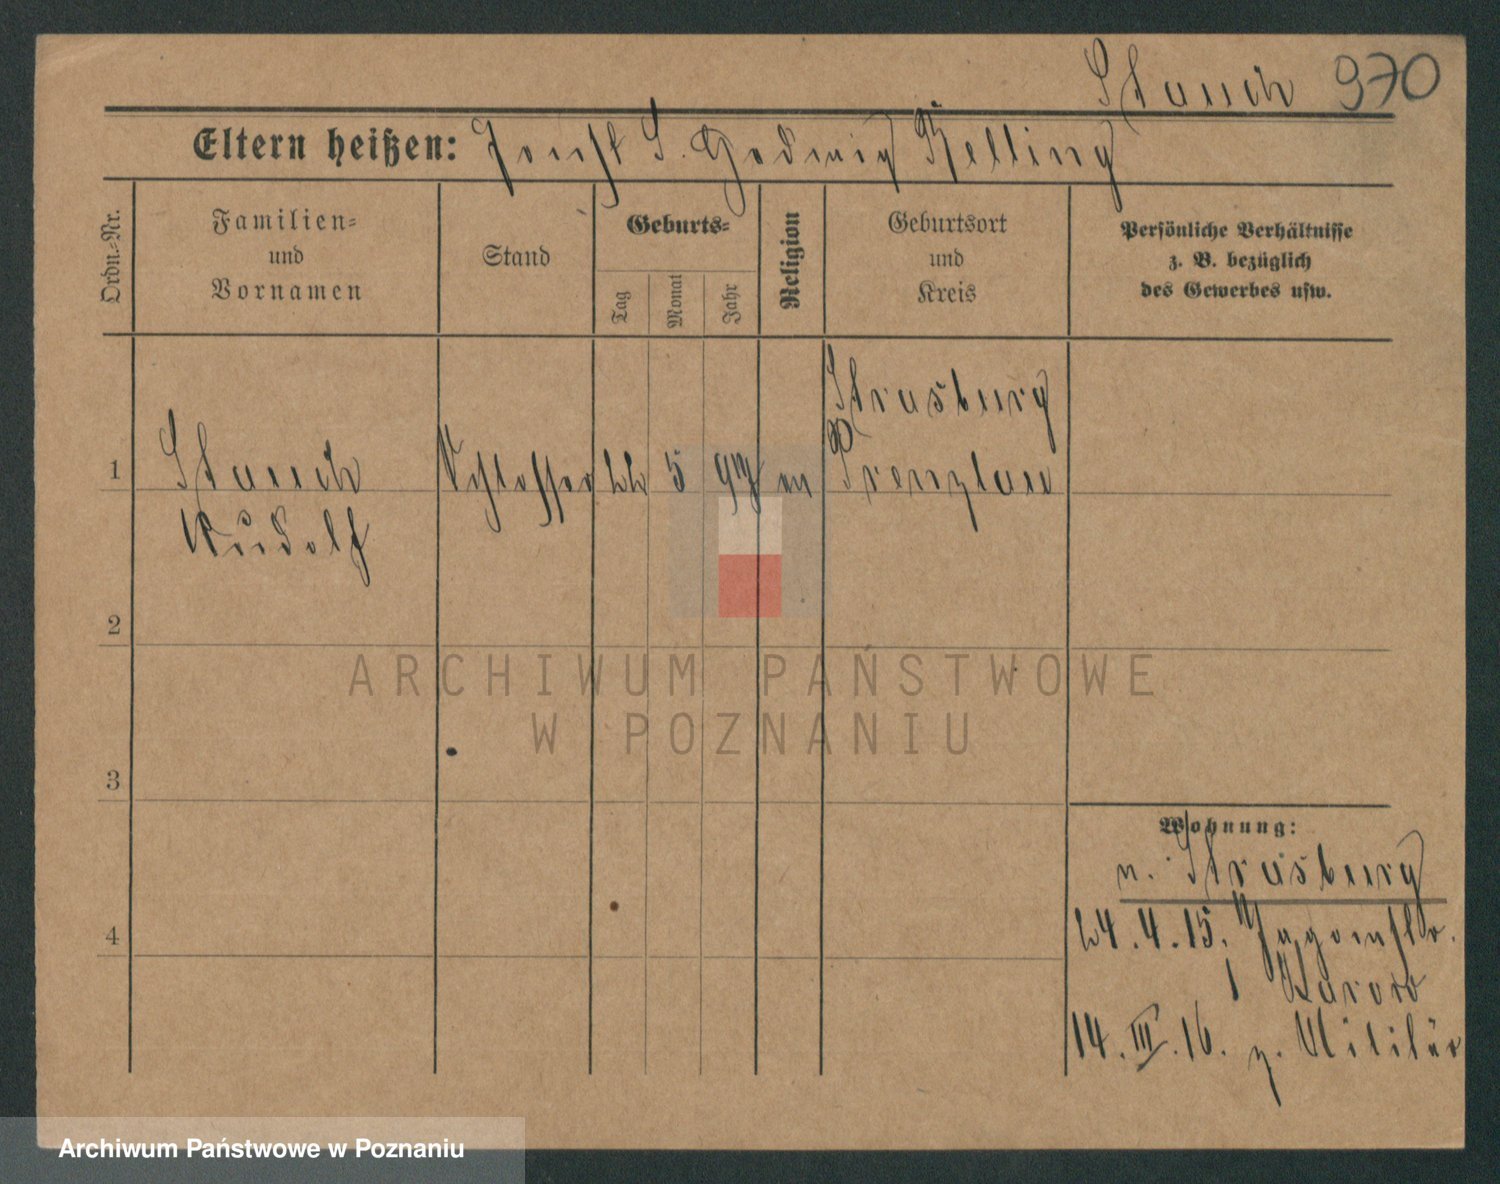 Stauch 970
Eltern heißen: S. Hedwig Kelling
Ordn.-Nr.
Familien=
und
Vornamen
Stand
Geburts=
Tag
Monat
Jahr
Religion
Geburtsort
und
Kreis
Persönliche Verhältnisse
z. B. bezüglich
des Gewerbes usw.
Strasburg
1 Stauch Schlosser 22 5 97 Prenzlau
Rudolf
2
ARCHIWUM PAŃSTWOWE
W POZNANIU
3
Wohnung:
n. Strasburg
4
24.4.15.
14.III.16. z. Militär
Archiwum Państwowe w Poznaniu